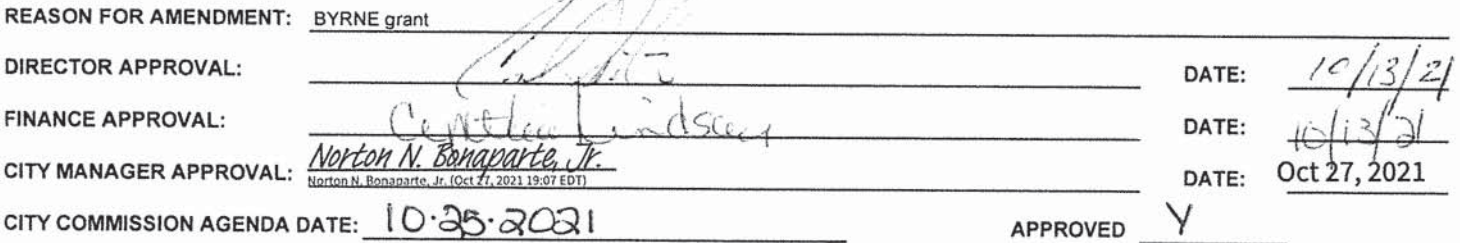 REASON FOR AMENDMENT: BYRNE grant
DIRECTOR APPROVAL: DATE: 10/13/21
FINANCE APPROVAL: Cynthia Lindsay DATE: 10/13/21
CITY MANAGER APPROVAL: Norton N. Bonaparte, Jr. DATE: Oct 27, 2021
Norton N. Bonaparte, Jr. (Oct 27, 2021 19:07 EDT)
CITY COMMISSION AGENDA DATE: 10.25.2021 APPROVED Y